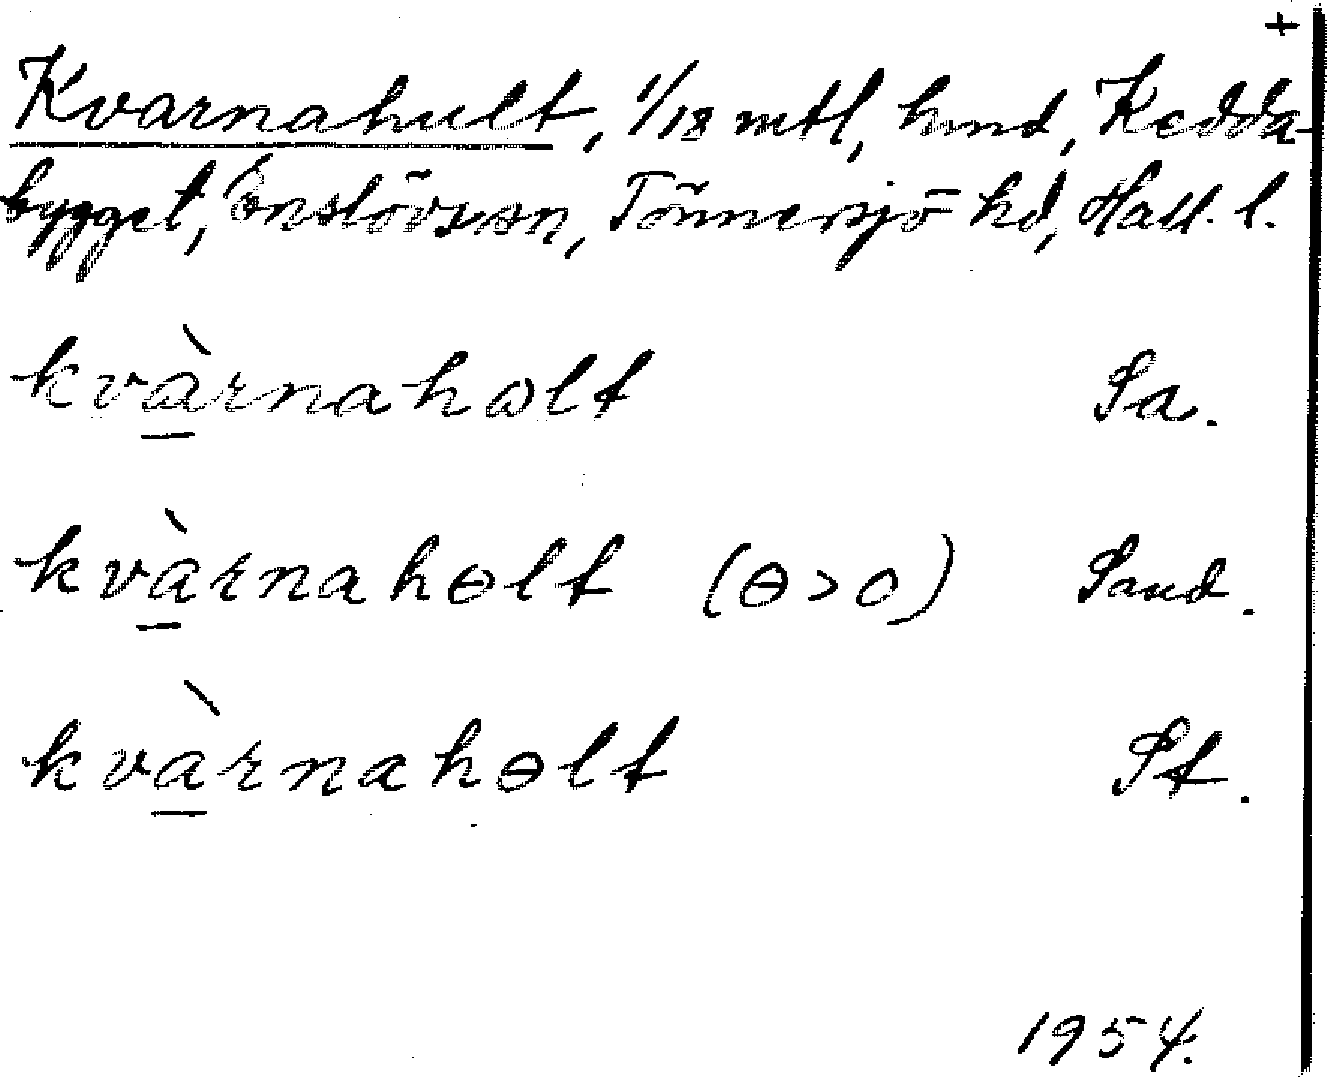 +
Kvarnahult, 1/18 mtl, hmd, Kedda-
bygget, Enslövs sn, Tönnersjö hd, Hall. l.
kvàrnahωlt Sa.
kvàrnahɵlt (ɵ>o) Sand.
kvàrnahɵlt St.
1954.